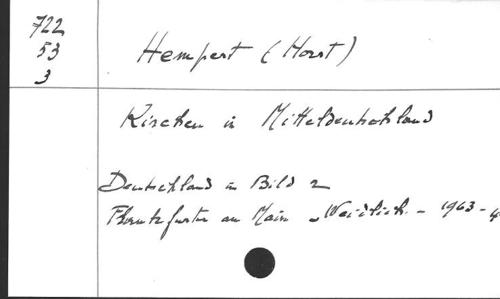 722
53
3
Hempert (Horst)
Kirchen in Mitteldeutschland
Deutschland in Bild 2
Frankfurter am Main - Weidlich - 1963 - 4